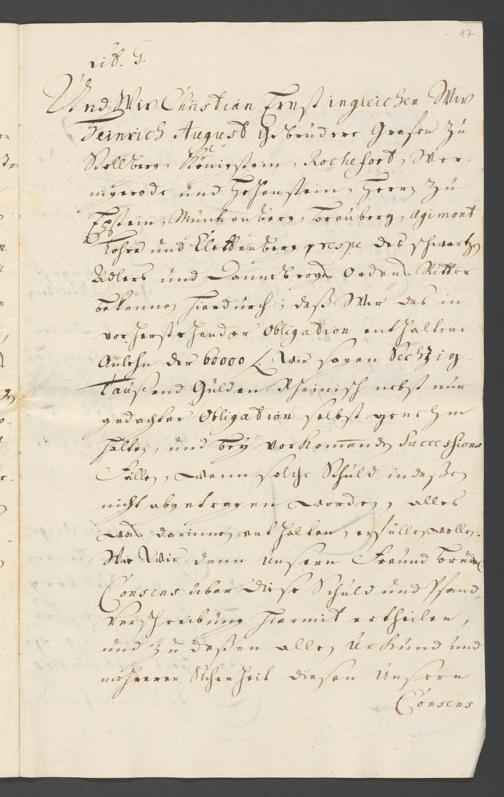 17
Lit. G.
Und Wir Christian Ernst ingleichen Wir
Heinrich August Gebrüdere Grafen zu
Stollberg, Königstein, Rochefort, Wer-
nigerode und Hohenstein, Herrn zu
Epstein, Müntzenberg, Breuberg, Agimont
Lohra und Clettenberg p des schwartzen
Adlers und Dannebrogs Ordens Ritter
bekennen hierdurch, daß Wir das in
vorherstehender Obligation enthaltene
Anlehn der 60000 f. Wir sagen Sechzig
Tausend Gülden Rheinisch nebst nur
gedachter Obligation selbst genehm
halten, und bey vorkommenden Successions
Fällen, wenn solche Schuld indeßen
nicht abgetragen worden, alles
was darinnen enthalten, erfüllen wollen.
Wie Wir denn Unsern Freund Brüderl.
Consens über diese Schuld und Pfand
Verschreibung hiermit ertheilen,
und zu deßen allen Uhrkund und
mehrerer Sicherheit diesen Unsern
Consens